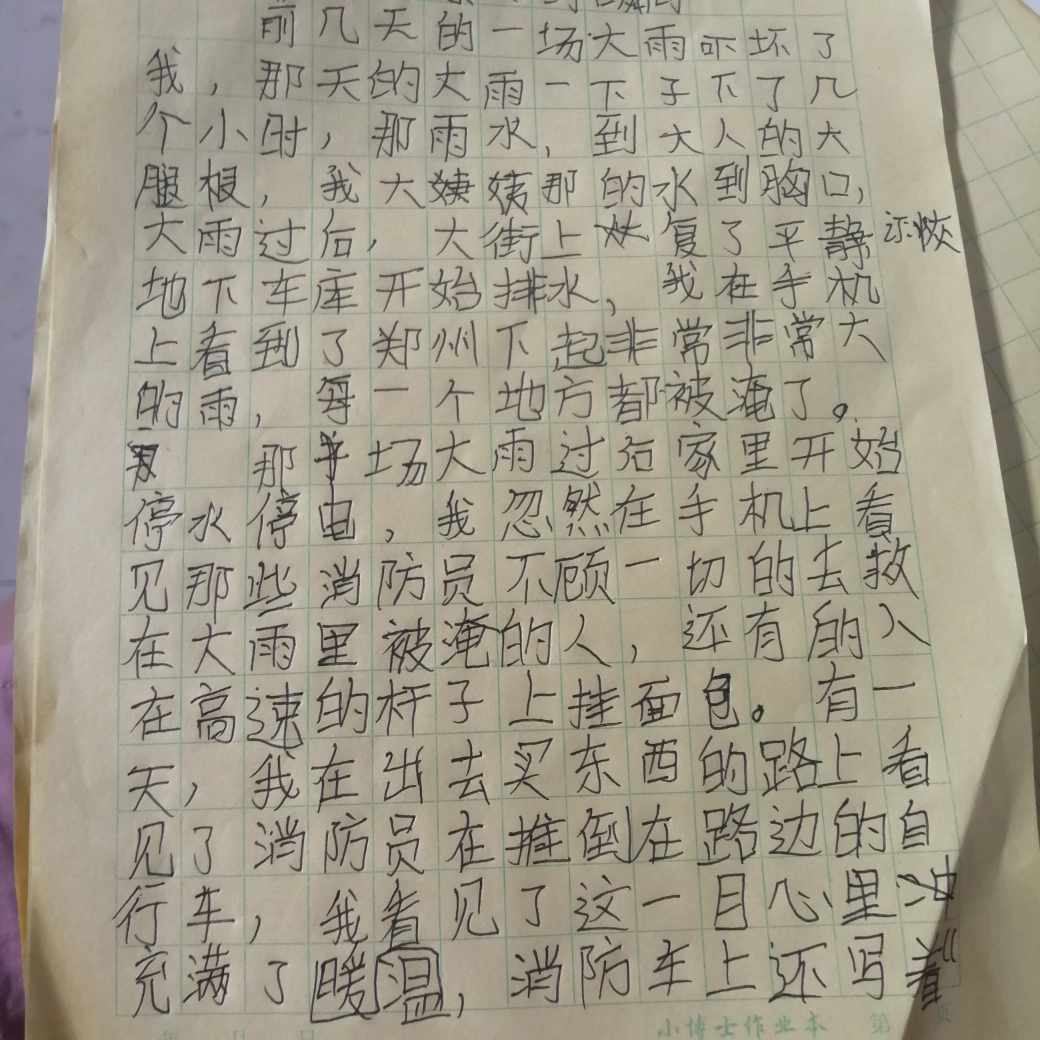 前几天的一场大雨吓坏了
我，那天的大雨一下子下了几
个小时，那雨水，到大人的大
腿根，我大姨姨那的水到胸口，
大雨过后，大街上恢复了平静还
地下车库开始排水，我在手机
上看到了郑州下起非常非常大
的雨，每一个地方都被淹了。
那场大雨过后家里开始
停水停电，我忽然在手机上看
见那些消防员不顾一切的去救
在大雨里被淹的人，还有的人
在高速的杆子上挂面包。有一
天，我在出去买东西的路上看
见了消防员在推倒在路边的自
行车，我看见了这一目心里冲
充满了暖温，消防车上还写着“
小博士作业本 第 页